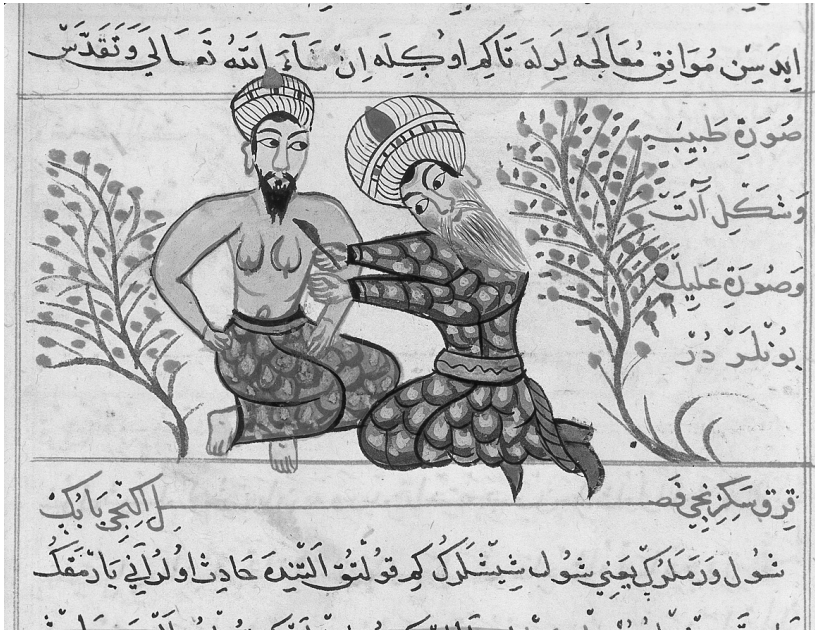 ايدسن موافق معالجه لرله تا كم اوكله ان شاء الله تعالى وتقدس
صورة طبيب
وشكل آلت
وصورة عليك
بونلر در
قرق سكزنجى فصل اكنجى بابك
شول ورملرك يعنى شول شيشلرك كم قولتق التنده حادث اولر آنى يارمقك